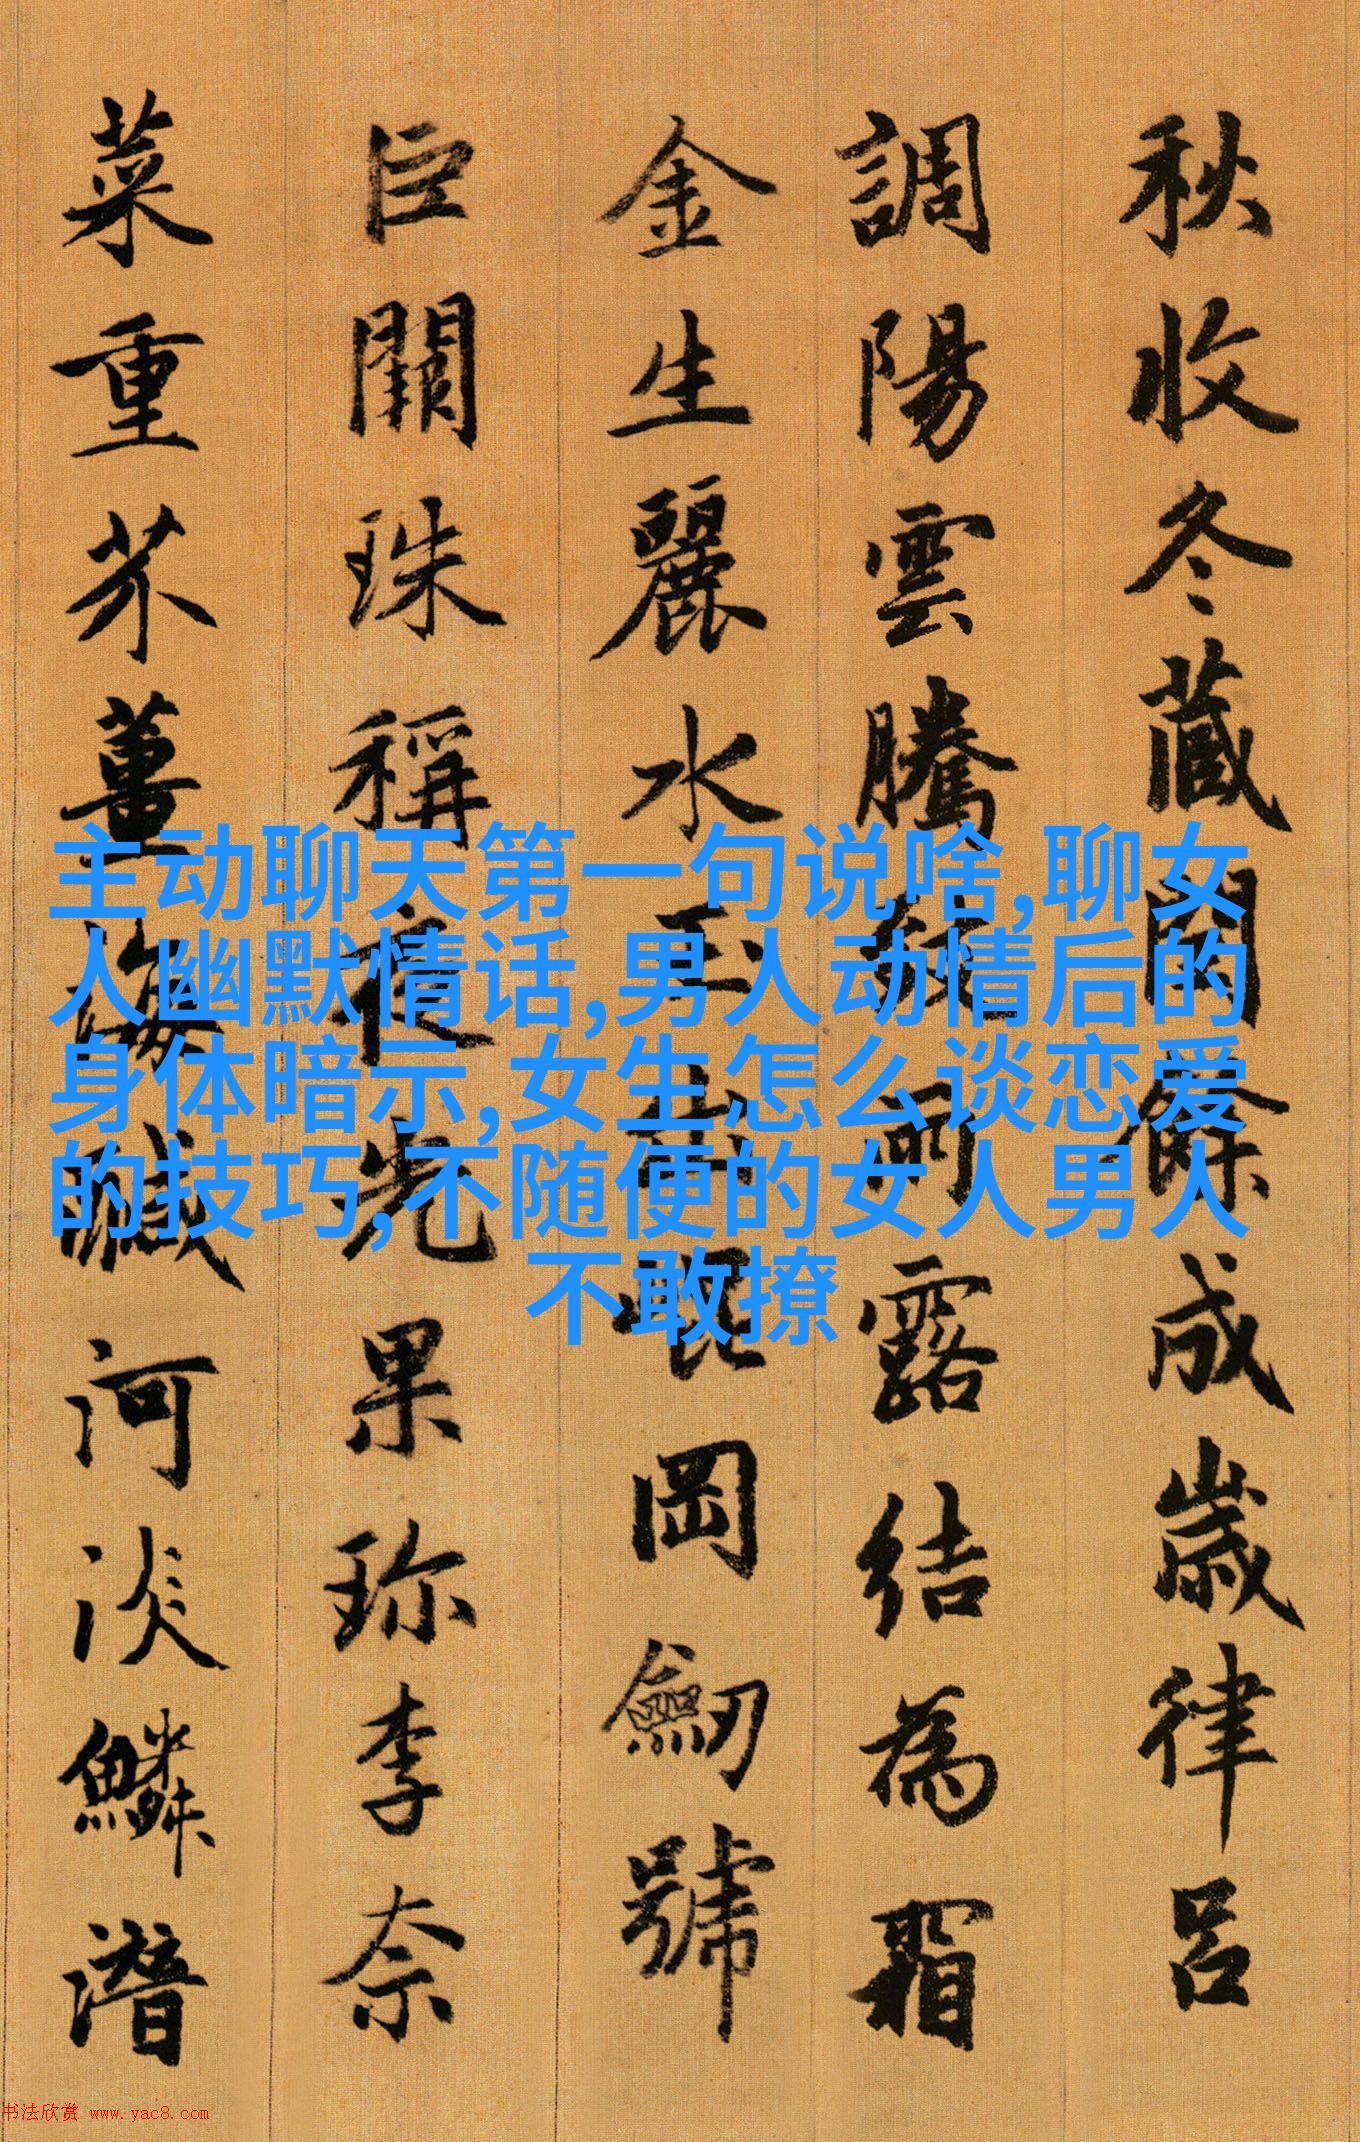 秋收冬藏閏餘成歲律呂
調陽雲騰致雨露結為霜
金生麗水玉出崐岡劒號
巨闕珠稱夜光果珎李奈
菜重芥薑海鹹河淡鱗潛
主动聊天第一句说啥,聊女
人幽默情话,男人动情后的
身体暗示,女生怎么谈恋爱
的技巧,不随便的女人男人
不敢撩
书法欣赏 www.yac8.com